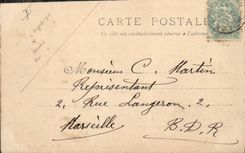 CARTE POSTALE
Ce côté est exclusivement réservé à l'adresse
Monsieur C. Martin
Représentant
2, Rue Langeron, 2,
Marseille
B. D. R